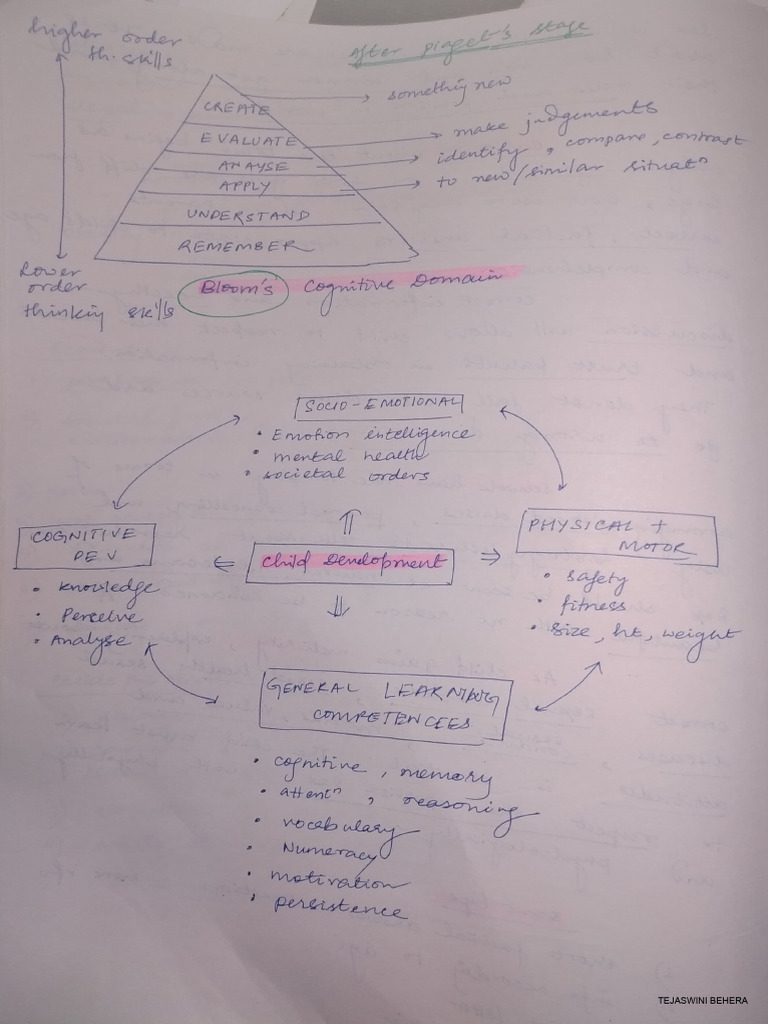 higher order
th. skills
After piaget's stage
CREATE
something new
EVALUATE
make judgements
ANAYSE
identify, compare, contrast
APPLY
to new/similar situatⁿ
UNDERSTAND
REMEMBER
Lower
order
thinking skills
Bloom's Cognitive Domain
SOCIO-EMOTIONAL
• Emotion intelligence
• mental health
• societal orders
COGNITIVE
DEV
• Knowledge
• Perceive
• Analyse
Child Development
PHYSICAL +
MOTOR
• safety
• fitness
• size, ht, weight
GENERAL LEARNING
COMPETENCEES
• cognitive, memory
• attentⁿ, reasoning
• vocabulary
• Numeracy
• motivation
• persistence
TEJASWINI BEHERA